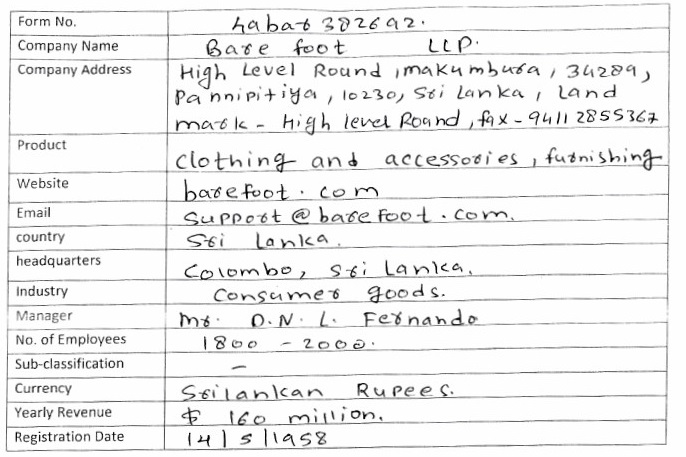 Form No. habar 382692.
Company Name Bare foot LLP.
Company Address High Level Round, makumbura, 34289,
Pannipitiya, 10230, Sri Lanka, Land
mark - High level Roand, fax - 9411 2855367
Product clothing and accessories, furnishing
Website barefoot.com
Email support@barefoot.com.
country Sri Lanka.
headquarters Colombo, Sri Lanka.
Industry Consumer goods.
Manager Mr. D.N.L. Fernando
No. of Employees 1800 - 2000.
Sub-classification —
Currency Srilankan Rupees.
Yearly Revenue $ 160 million.
Registration Date 14/5/1958